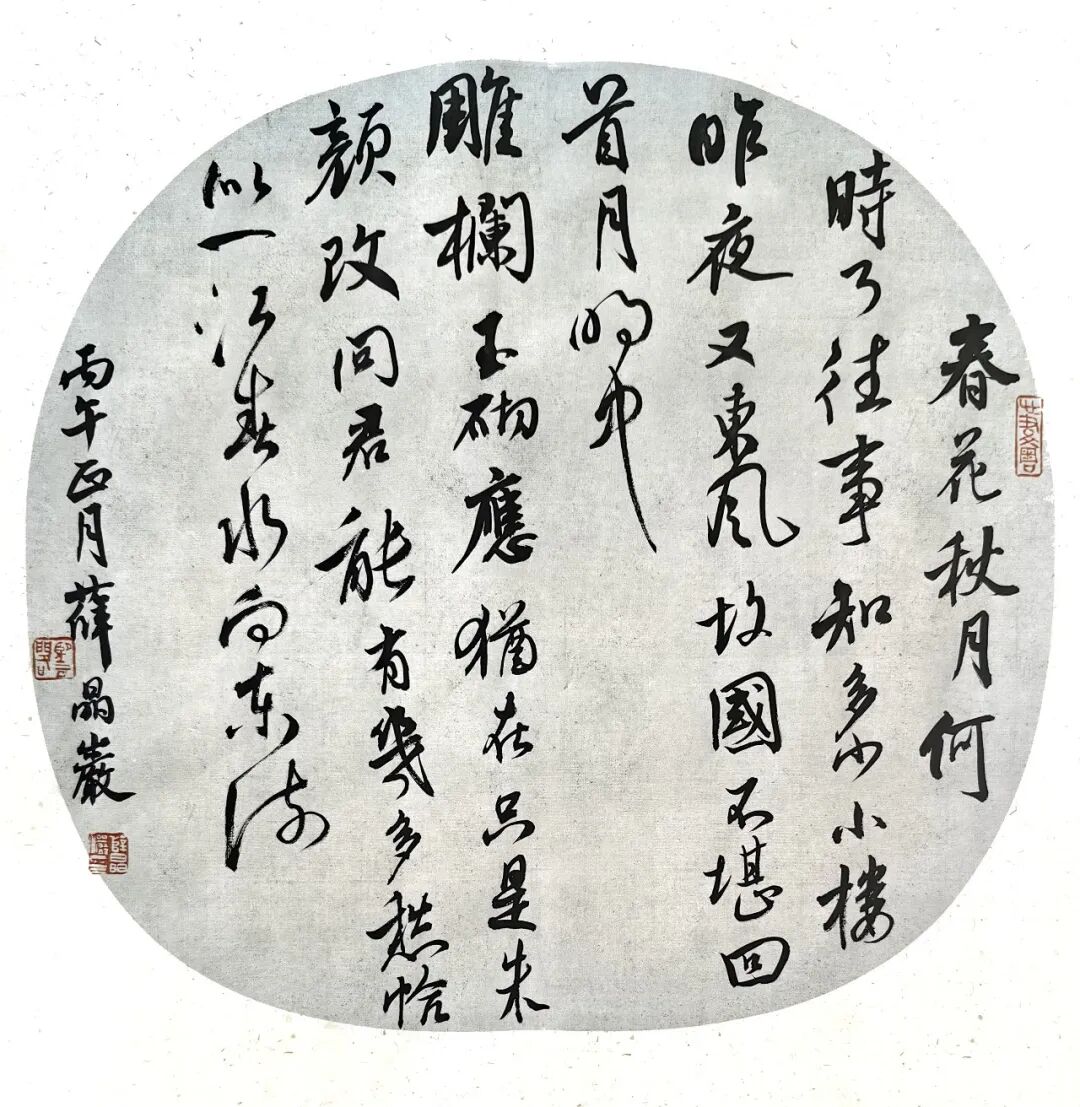 春花秋月何
時了往事知多少小樓
昨夜又東風故國不堪回
首月明中
雕欄玉砌應猶在只是朱
顏改問君能有幾多愁恰
似一江春水向東流
丙午正月薛晶巖